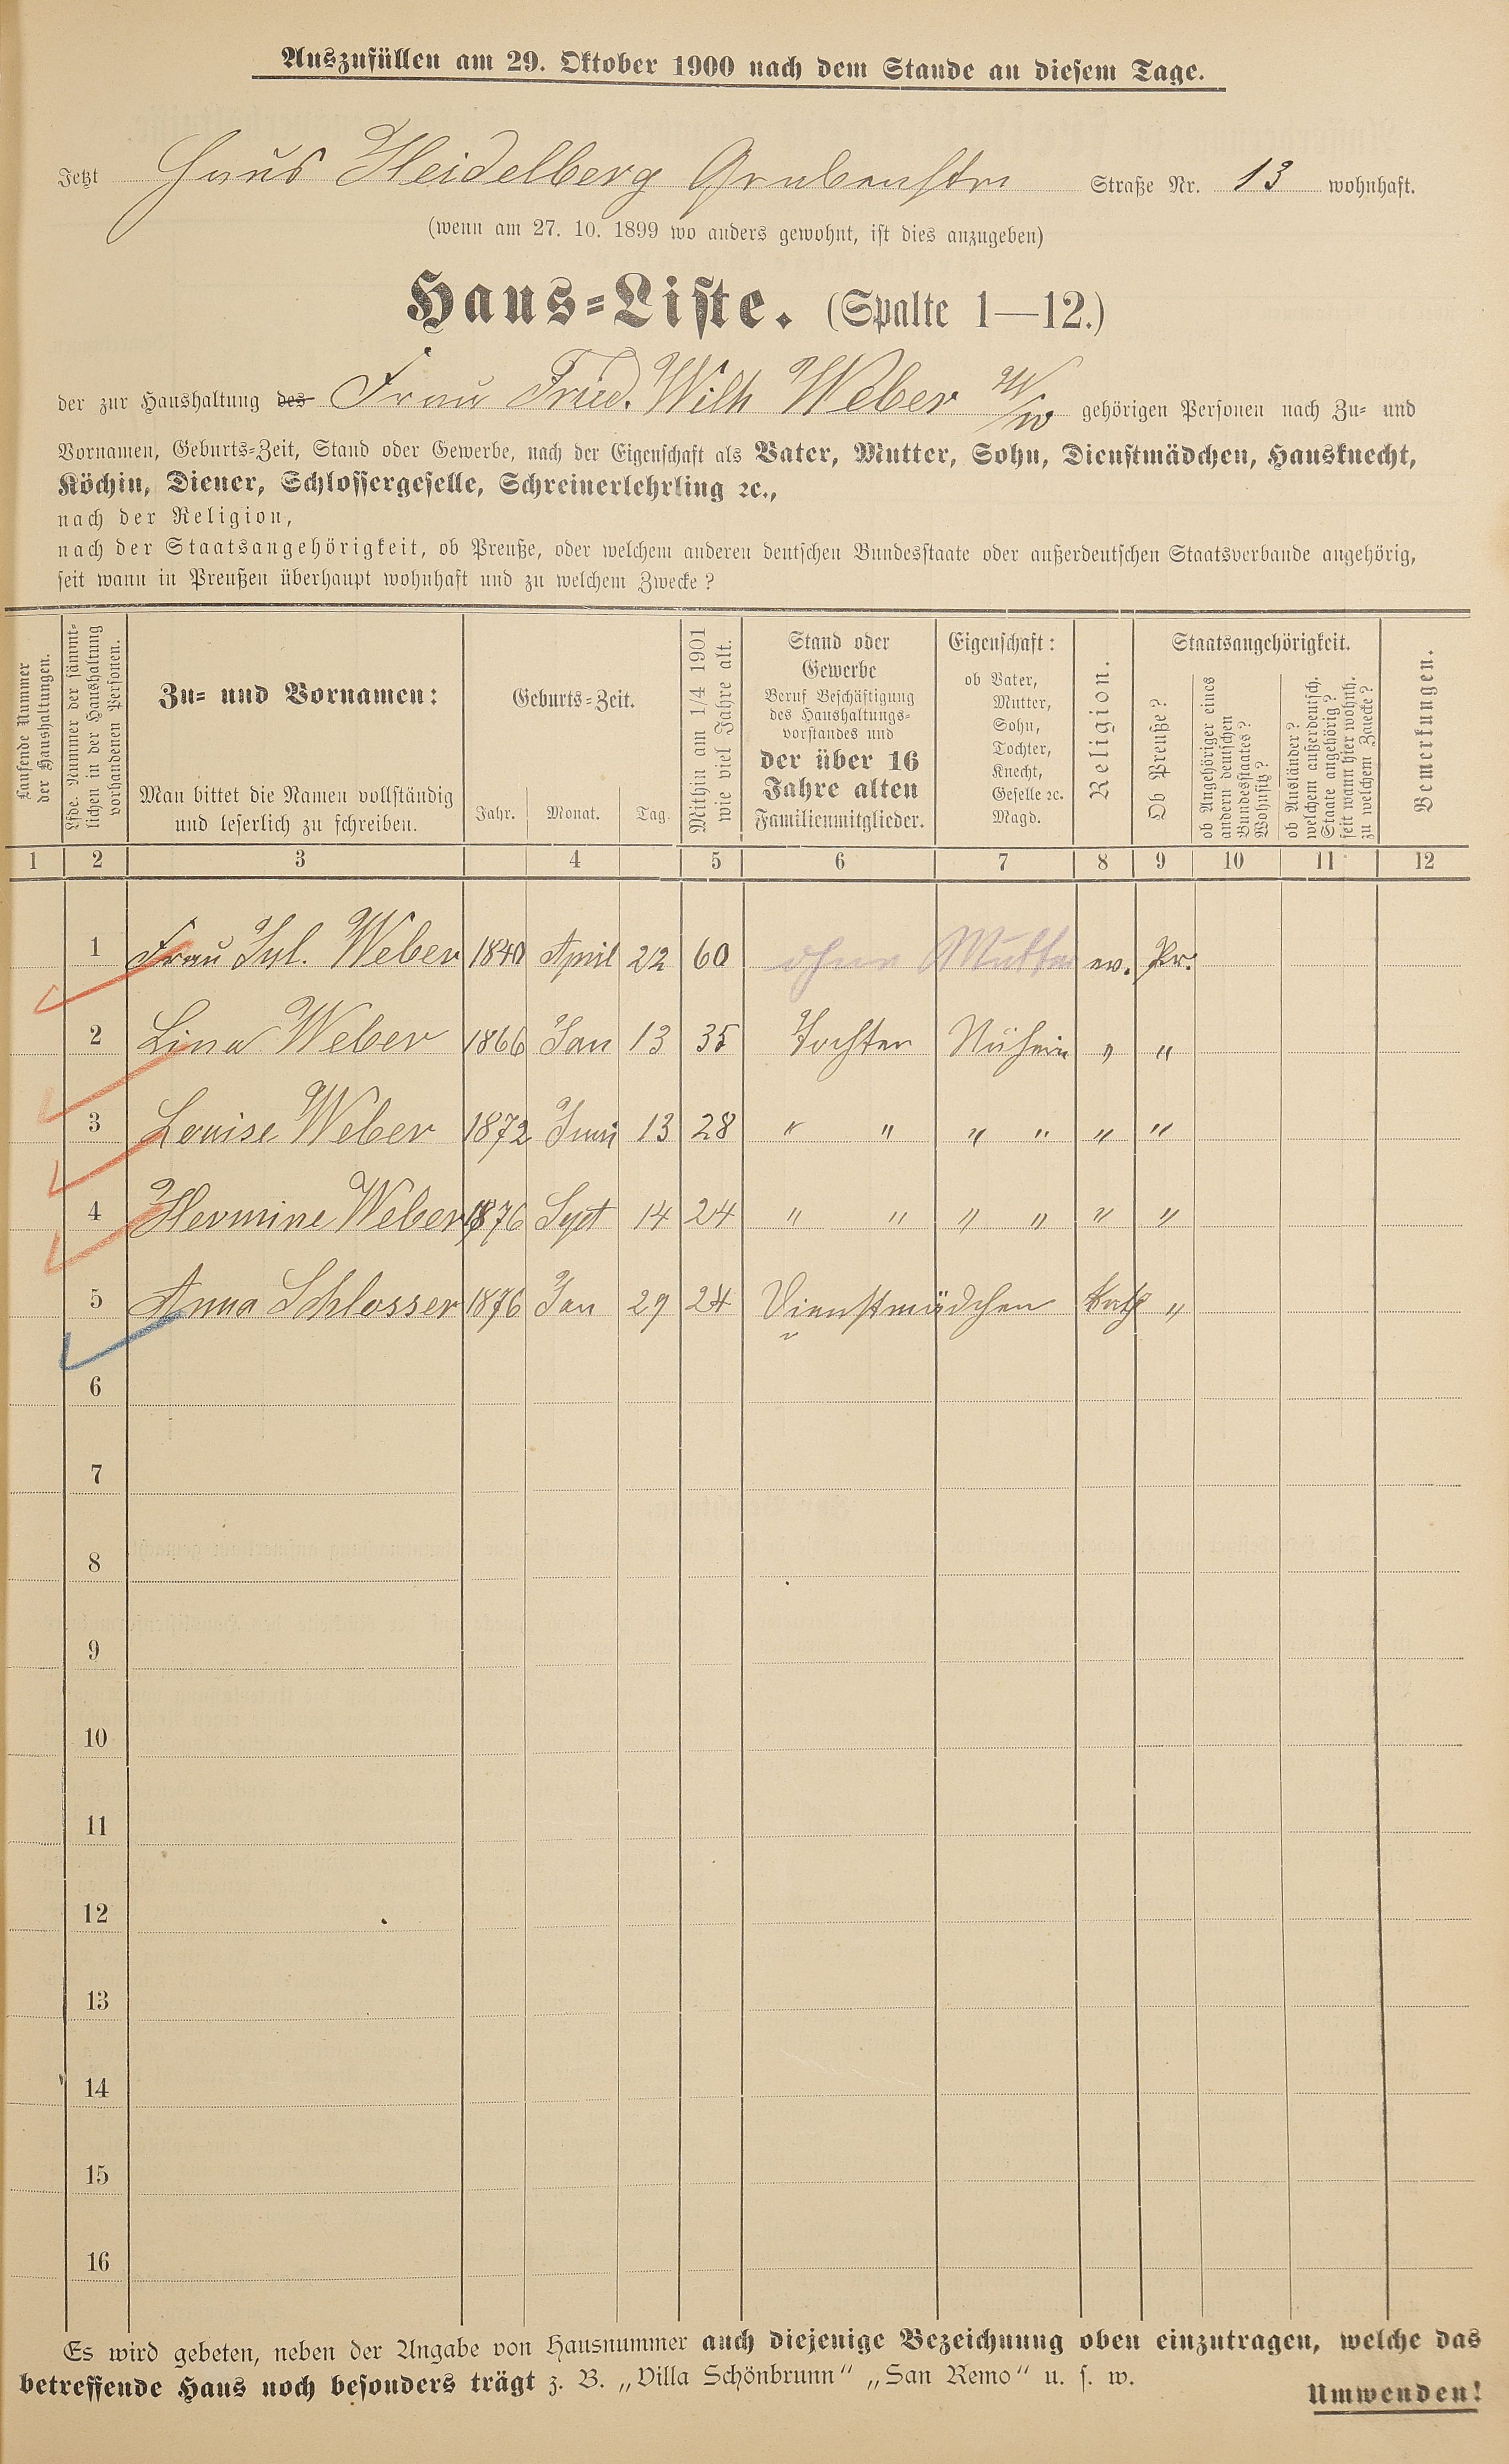 Auszufüllen am 29. Oktober 1900 nach dem Stande an diesem Tage.
Jetzt Haus Heidelberg Grabenstr. Straße Nr. 13 wohnhaft.
(wenn am 27. 10. 1899 wo anders gewohnt, ist dies anzugeben)
Haus-Liste. (Spalte 1—12.)
der zur Haushaltung des Frau Fried. Wilh Weber Ww gehörigen Personen nach Zu- und
Vornamen, Geburts-Zeit, Stand oder Gewerbe, nach der Eigenschaft als Vater, Mutter, Sohn, Dienstmädchen, Hausknecht,
Köchin, Diener, Schlossergeselle, Schreinerlehrling ꝛc.,
nach der Religion,
nach der Staatsangehörigkeit, ob Preuße, oder welchem anderen deutschen Bundesstaate oder außerdeutschen Staatsverbande angehörig,
seit wann in Preußen überhaupt wohnhaft und zu welchem Zwecke?
Laufende Nummer
der Haushaltungen.
Lfde. Nummer der sämmt-
lichen in der Haushaltung
vorhandenen Personen.
Zu- und Vornamen:
Man bittet die Namen vollständig
und leserlich zu schreiben.
Geburts-Zeit.
Jahr. Monat. Tag.
Mithin am 1/4 1901
wie viel Jahre alt.
Stand oder
Gewerbe
Beruf Beschäftigung
des Haushaltungs-
vorstandes und
der über 16
Jahre alten
Familienmitglieder.
Eigenschaft:
ob Vater,
Mutter,
Sohn,
Tochter,
Knecht,
Geselle ꝛc.
Magd.
Religion.
Staatsangehörigkeit.
Ob Preuße?
ob Angehöriger eines
andern deutschen
Bundesstaates?
Wohnsitz?
ob Ausländer?
welchem außerdeutsch.
Staate angehörig?
seit wann hier wohnh.
zu welchem Zwecke?
Bemerkungen.
1 2 3 4 5 6 7 8 9 10 11 12
1 Frau Jul. Weber 1840 April 22 60 ohne Mutter ev. Pr.
2 Lina Weber 1866 Jan 13 35 Tochter " "
3 Louise Weber 1872 Juni 13 28 " " " " " "
4 Hermine Weber 1876 Sept 14 24 " " " " " "
5 Anna Schlosser 1876 Jan 29 24 Dienstmädchen kath "
6
7
8
9
10
11
12
13
14
15
16
Es wird gebeten, neben der Angabe von Hausnummer auch diejenige Bezeichnung oben einzutragen, welche das
betreffende Haus noch besonders trägt z. B. „Villa Schönbrunn“ „San Remo“ u. s. w.
Umwenden!